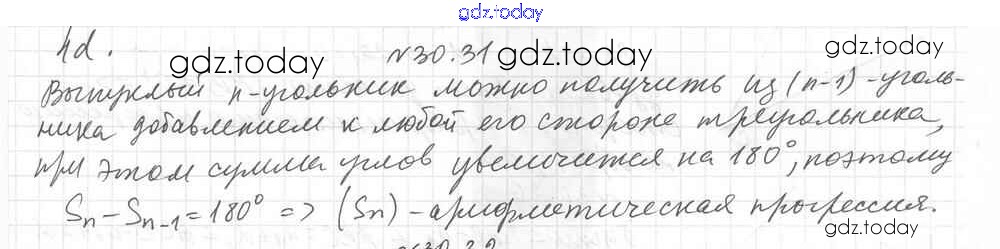 gdz.today
gdz.today
gdz.today
№30.31
gdz.today
Выпуклый n-угольник можно получить из (n-1)-уголь-
ника добавлением к любой его стороне треугольника,
при этом сумма углов увеличится на 180°, поэтому
gdz.today
gdz.today
Sn - Sn-1 = 180° => (Sn) - арифметическая прогрессия.